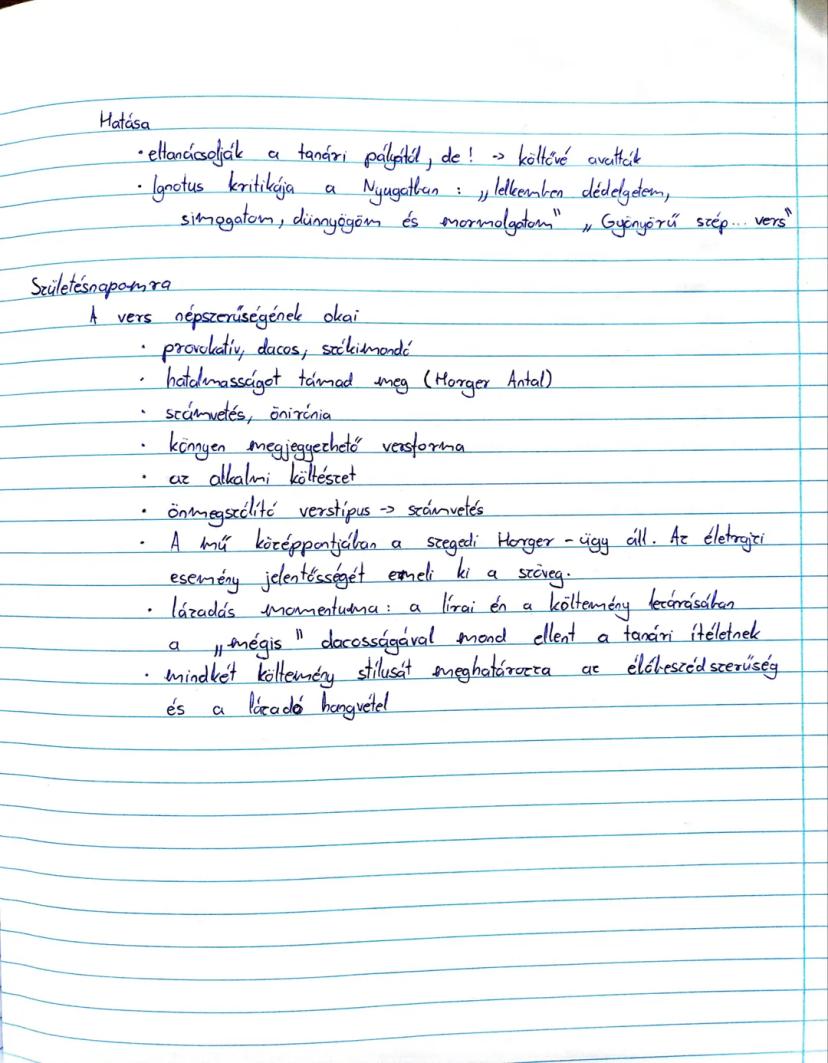 Hatása
• eltanácsolják a tanári pályától, de! -> költővé avatták
• Ignotus kritikája a Nyugatban : „lelkemben dédelgetem,
simogatom, dünnyögöm és mormolgatom" „Gyönyörű szép... vers"
Születésnapomra
A vers népszerűségének okai
• provokatív, dacos, szókimondó
• hatalmasságot támad meg (Horger Antal)
• számvetés, önirónia
• könnyen megjegyezhető versforma
• az alkalmi költészet
• önmegszólító verstípus -> számvetés
• A mű középpontjában a szegedi Horger - ügy áll. Az életrajzi
esemény jelentősségét emeli ki a szöveg.
• lázadás momentuma: a lírai én a költemény lezárásában
a „mégis" dacosságával mond ellent a tanári ítéletnek
• mindkét költemény stílusát meghatározza az élőbeszédszerűség
és a lázadó hangvétel